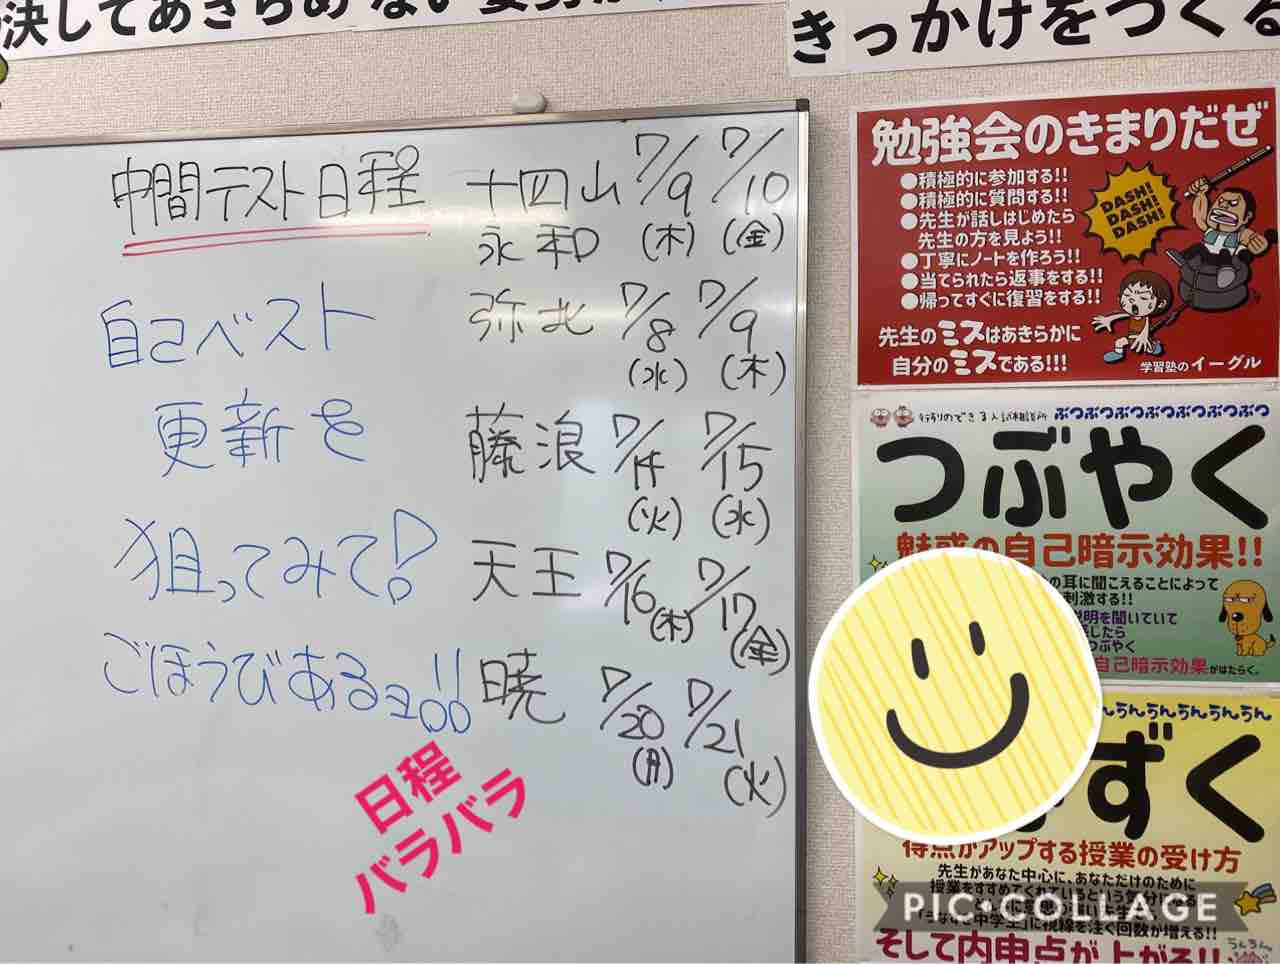 決してあきらめない
きっかけをつくる
中間テスト日程
自己ベスト
更新を
狙ってみて!
ごほうびあるヨ!!
十四山 7/9 7/10
永和 (木) (金)
弥北 7/8 7/9
(水) (木)
藤浪 7/14 7/15
(火) (水)
天王 7/16 7/17
(木) (金)
暁 7/20 7/21
(月) (火)
日程
バラバラ
勉強会のきまりだぜ
●積極的に参加する!!
●積極的に質問する!!
●先生が話しはじめたら
先生の方を見よう!!
●丁寧にノートを作ろう!!
●当てられたら返事をする!!
●帰ってすぐに復習をする!!
DASH!
DASH!
DASH!
先生のミスはあきらかに
自分のミスである!!!
学習塾のイーグル
ぶつぶつぶつぶつぶつぶつぶつ
つぶやく
魅惑の自己暗示効果!!
の耳に聞こえることによって
刺激する!!
説明を聞いていて
したら
つぶやく
自己暗示効果がはたらく。
んうんうんうんうんうん
ずく
得点がアップする授業の受け方
先生があなた中心に、あなただけのために
授業をすすめてくれているという気分になる
「うなずき中学生」に視線を注ぐ回数が増える!!
そして内申点が上がる!!
うんうん
PIC•COLLAGE